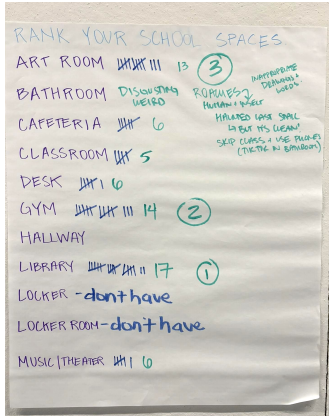 RANK YOUR SCHOOL SPACES
ART ROOM 13 3
BATHROOM DISGUSTING WEIRD
ROACHES
HUMAN + INSECT
INAPPROPRIATE DRAWINGS + WORDS
HAUNTED LAST STALL
↳ BUT IT'S CLEAN!
SKIP CLASS + USE PHONES
(TIKTOK IN BATHROOM)
CAFETERIA 6
CLASSROOM 5
DESK 6
GYM 14 2
HALLWAY
LIBRARY 17 1
LOCKER - don't have
LOCKER ROOM - don't have
MUSIC/THEATER 6